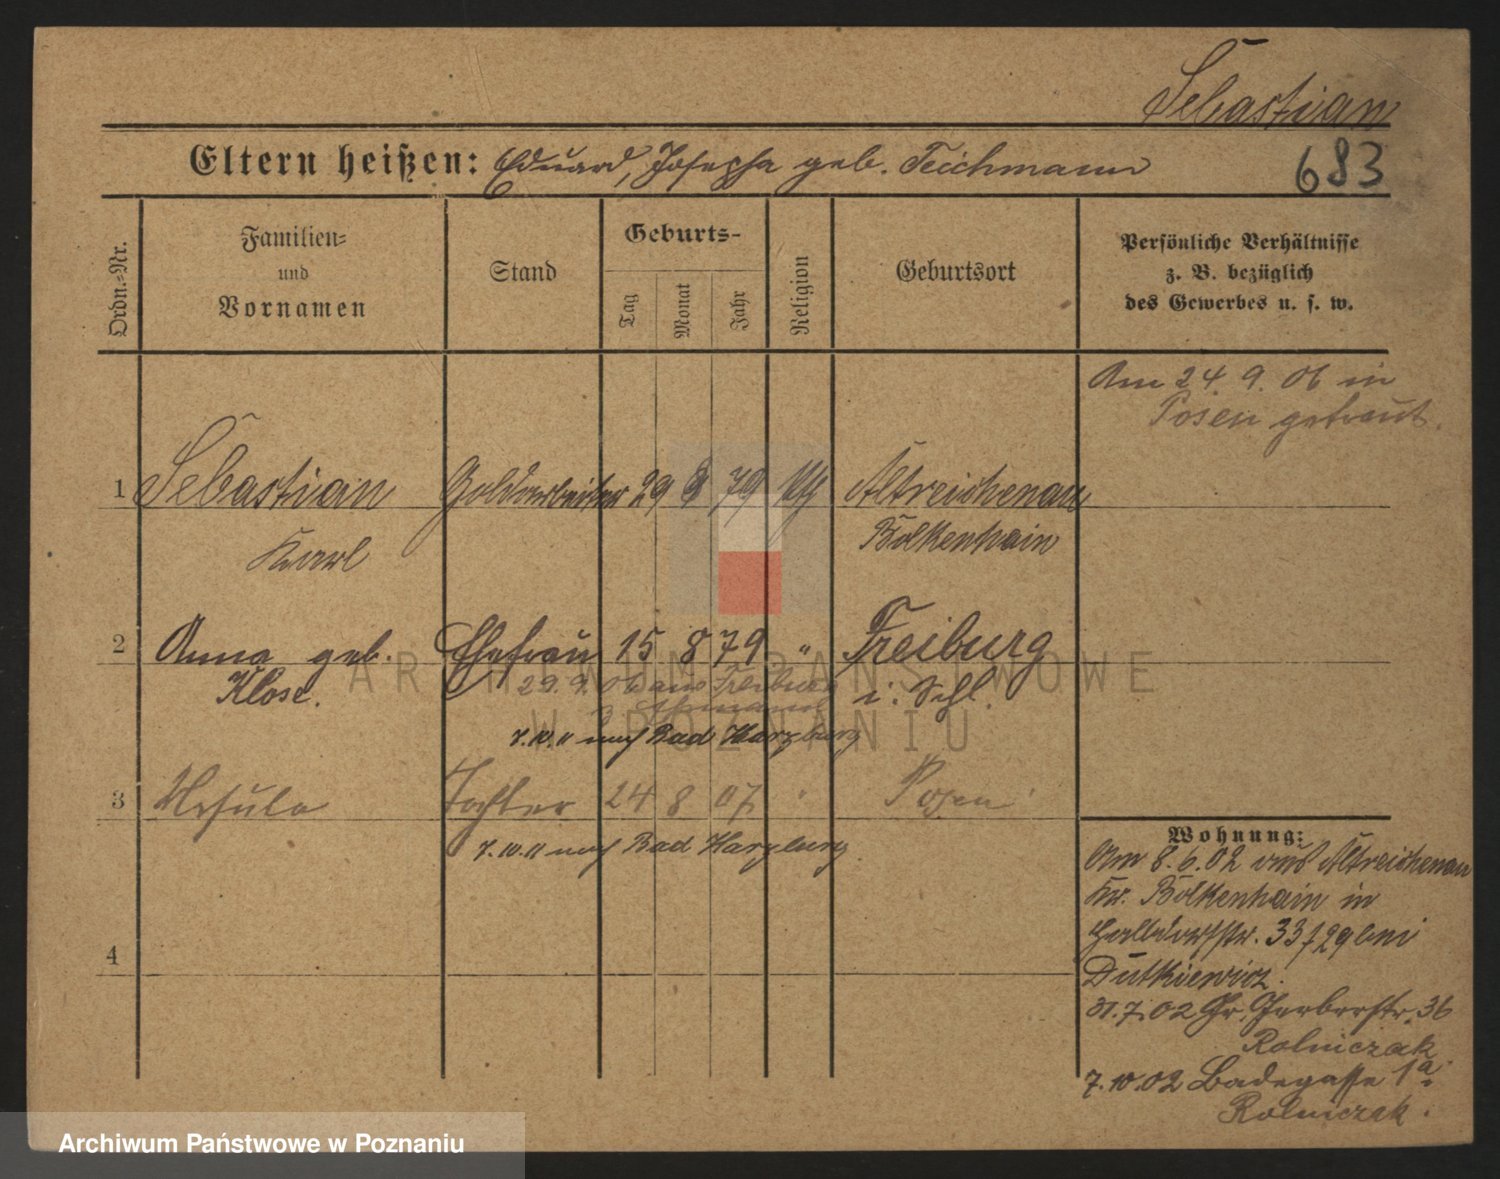 Sebastian
Eltern heißen: Eduard, Josepha geb. Teichmann
683
Ordn.-Nr.
Familien-
und
Vornamen
Stand
Geburts-
Tag
Monat
Jahr
Religion
Geburtsort
Persönliche Verhältnisse
z. B. bezüglich
des Gewerbes u. s. w.
Am 24 9. 06 in
Posen getraut.
1 Sebastian Goldarbeiter 29 79 Altreichenau
Karl Bolkenhain
2 Anna geb. Ehefrau 15 8 79 " Freiburg
Klose. i. Schl.
29. 9. 06 aus Freiburg
7.10.11 nach Bad Harzburg
3 Ursula Tochter 24 8 07 Posen
7.10.11 nach Bad Harzburg
4
Wohnung:
Am 8.6.02 aus Altreichenau
Kr. Bolkenhain in
Halbdorfstr. 33/29 bei
Dutkiewicz.
31.7.02 Gr. Gerberstr. 36
Rolniczak
7.10.02 Badegasse 1a.
Rolniczak.
ARCHIWUM PAŃSTWOWE
W POZNANIU
Archiwum Państwowe w Poznaniu